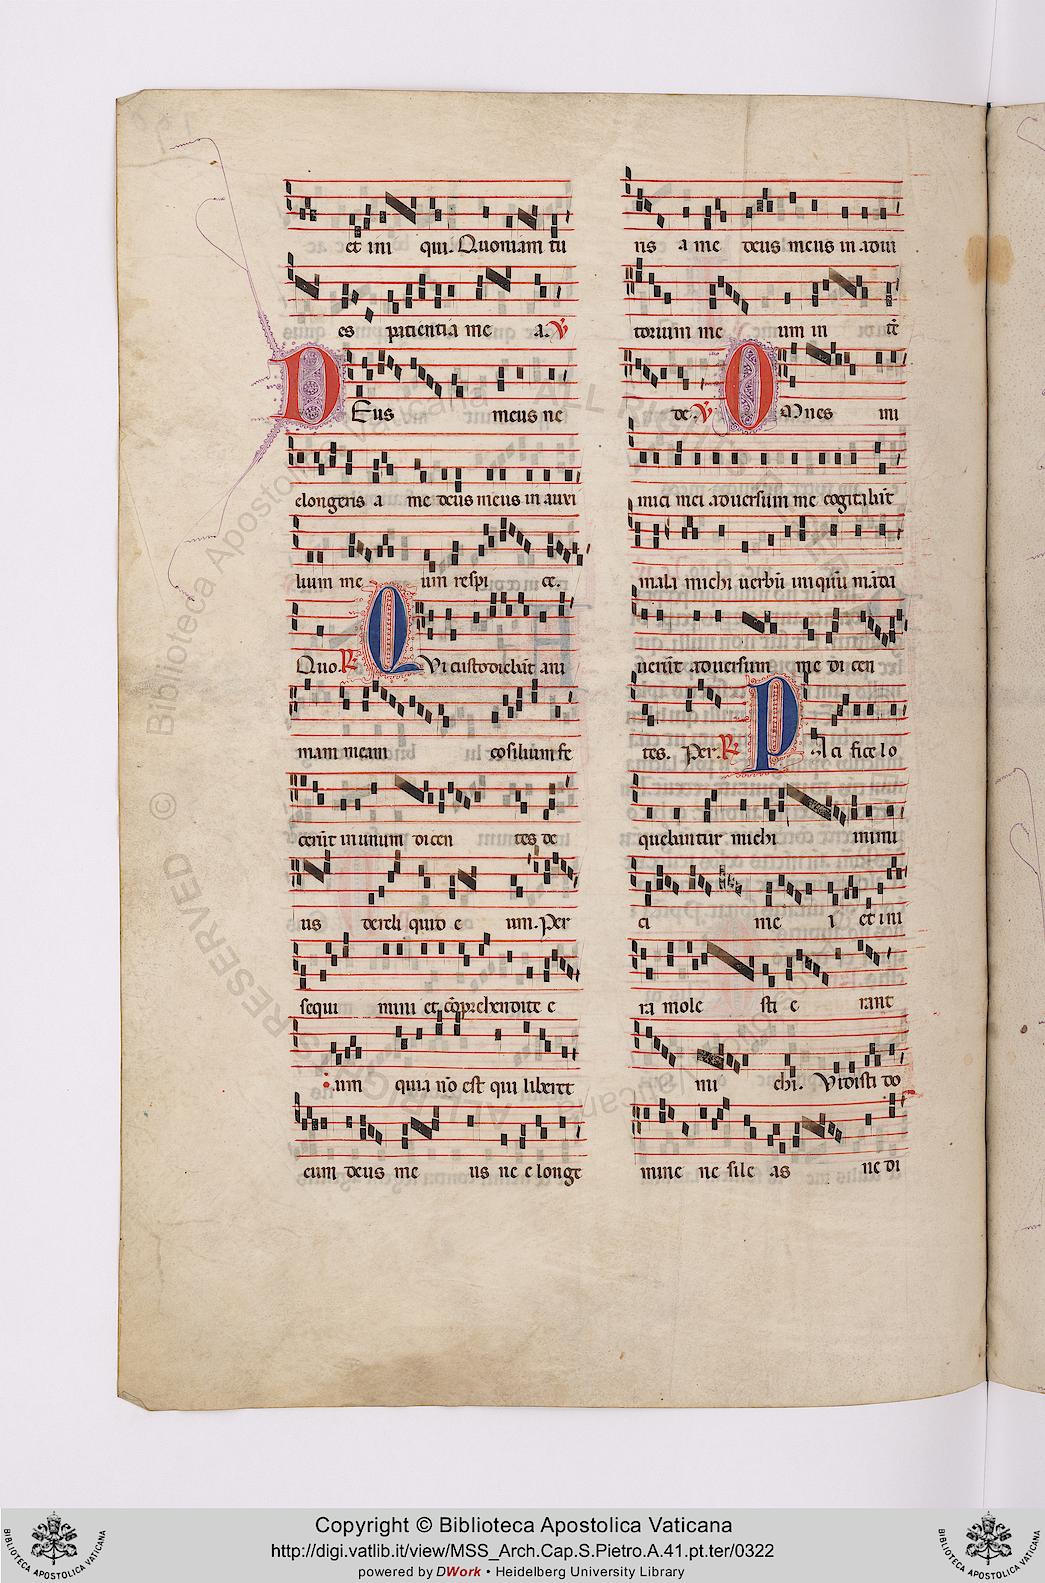 et ini qui. Quoniam tu
es patientia me a. ℣
DEus meus ne
elongeris a me deus meus in auxi
lium me um respi ce.
Quo. ℟ QVi custodiebāt ani
mam meam cōsilium fe
cerūt in unum dicen tes de
us dereli quid e um. Per
sequi mini et cōprehendite e
um quia nō est qui liberet
eum deus me us ne elonge
ris a me deus meus in adiu
torium me um in tē
de. ℣ OMnes ini
mici mei adversum me cogitabāt
mala michi uerbū iniquū mādā
uerūt adversum me dicen
tes. Per. ℟ Pacifice lo
quebantur michi inimi
ci me i et in i
ra mole sti e rant
mi chi. Vidisti do
mine ne sile as ne di
© Biblioteca Apostolica Vaticana ALL RIGHTS RESERVED
Copyright © Biblioteca Apostolica Vaticana
http://digi.vatlib.it/view/MSS_Arch.Cap.S.Pietro.A.41.pt.ter/0322
powered by DWork • Heidelberg University Library
BIBLIOTECA APOSTOLICA VATICANA
BIBLIOTECA APOSTOLICA VATICANA